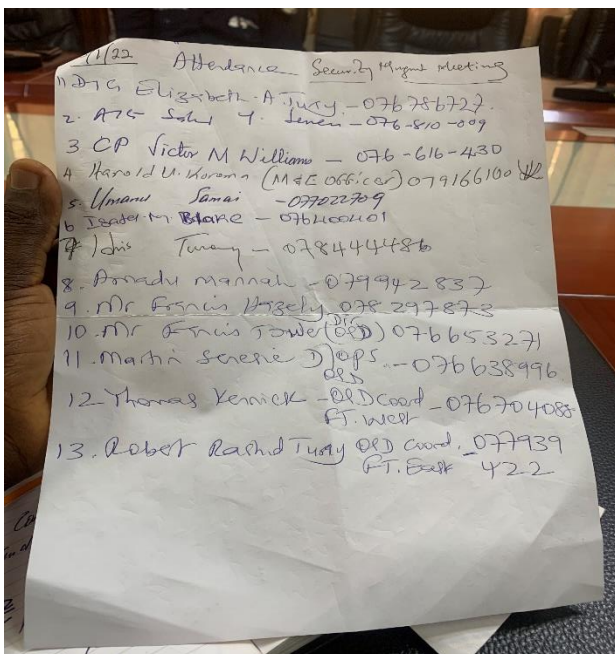 /1/22 Attendance Security Mngmt Meeting
1) DIG Elizabeth. A. Turay. - 076786727.
2. AIG Y. - 076-810-009
3 CP Victor M Williams - 076-616-430
4 Harold U. Koroma (M&E Officer) 079166100
5. Umaru Samai - 077022709
6 M. Blake - 076400401
Idris Turay - 078444486
8. Amadu Mannah - 079942837
9. Mr Francis Hazely 078 297873
10. Mr Francis Tower (Dir OSD) 076653271
11. Martin D/OPS - 076638996
OSD
12 Thomas Kennick - OSD Coord - 076704088
FT. West
13. Robert Rashid Turay OSD Coord. - 077939
FT. East 422